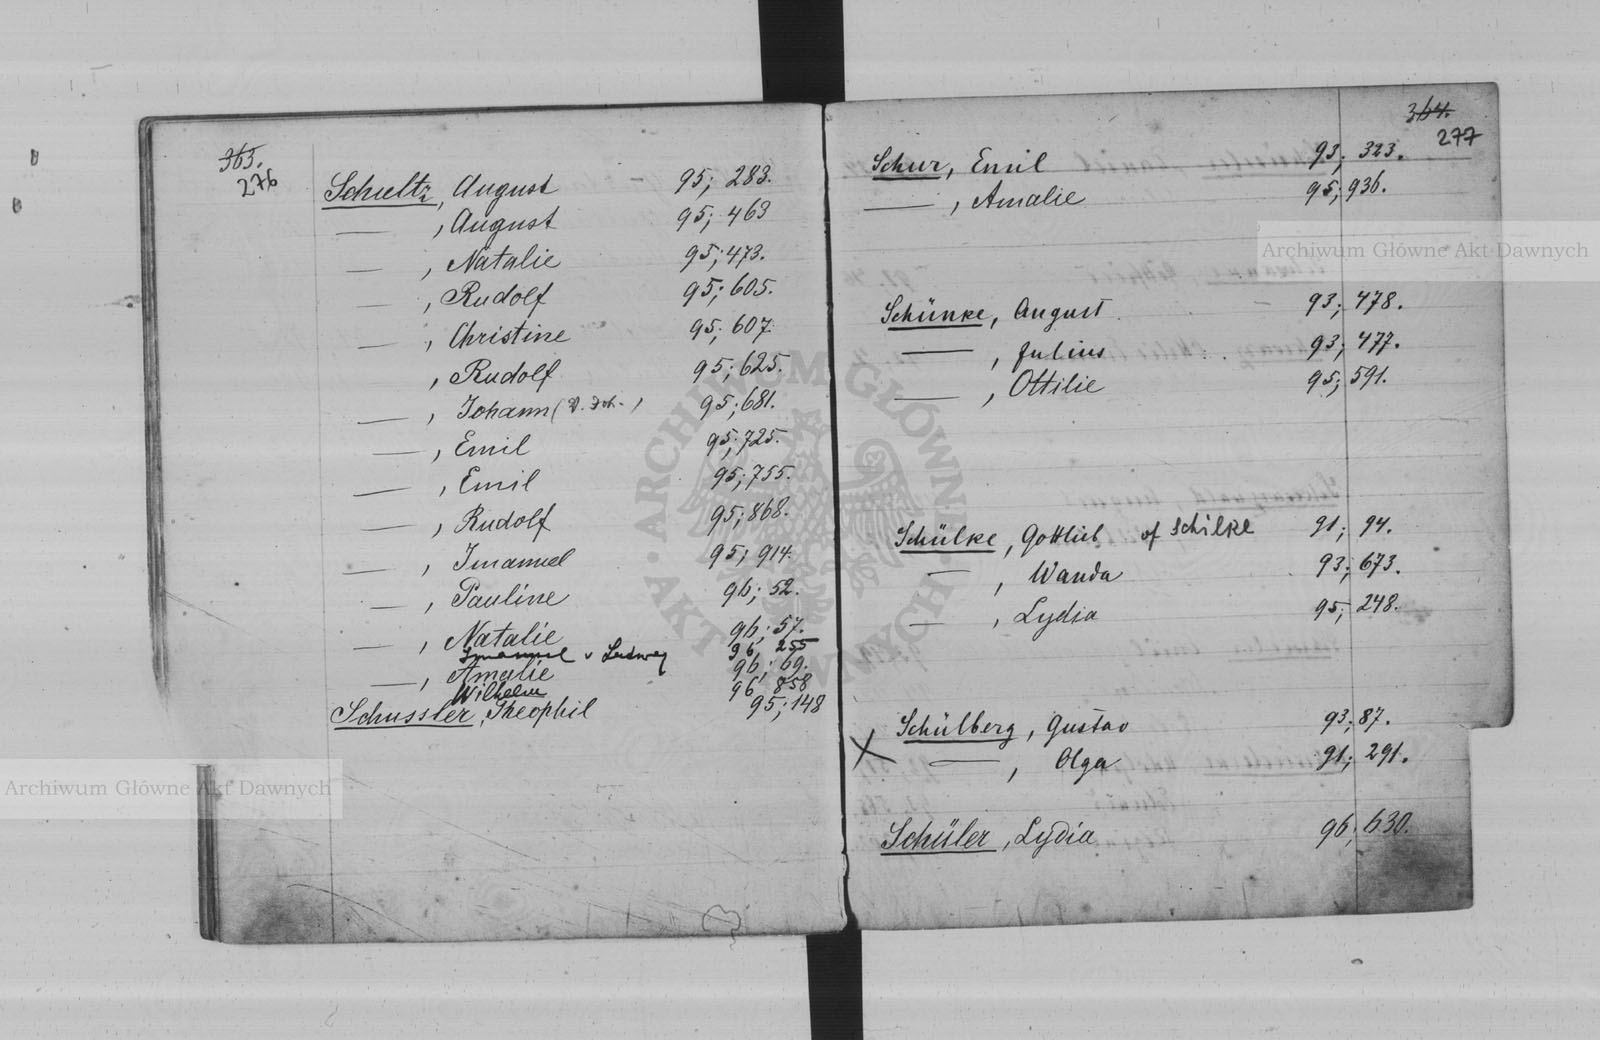 363.
276
Schultz, August 95; 283.
— , August 95; 463
— , Natalie 95; 473.
— , Rudolf 95; 605.
— , Christine 95; 607.
, Rudolf 95; 625.
— , Johann (v. Joh.) 95; 681.
— , Emil 95; 725.
— , Emil 95; 755.
— , Rudolf 95; 868.
— , Imanuel 95; 914.
— , Pauline 96; 52.
— , Natalie 96; 57.
Imanuel v Ludwig 96, 255
— , Amalie 96; 69.
Wilhelm 96 858
Schussler, Theophil 95; 148
364.
277
Schur, Emil 93; 323.
— , Amalie 95; 936.
Schünke, August 93; 478.
— , Julius 93; 477.
— , Ottilie 95; 591.
Schülke, Gottlieb of Schilke 91; 94.
— , Wanda 93; 673.
— , Lydia 95; 248.
Schülberg, Gustav 93; 87.
X — , Olga 91; 291.
Schüler, Lydia 96; 630.
Archiwum Główne Akt Dawnych
Archiwum Główne Akt Dawnych
ARCHIWUM GŁÓWNE AKT DAWNYCH